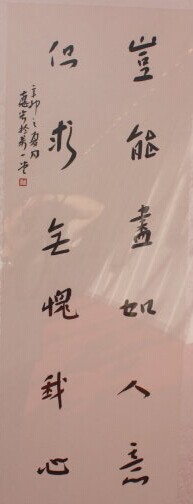 豈能盡如人意
但求無愧我心
辛卯之夏月